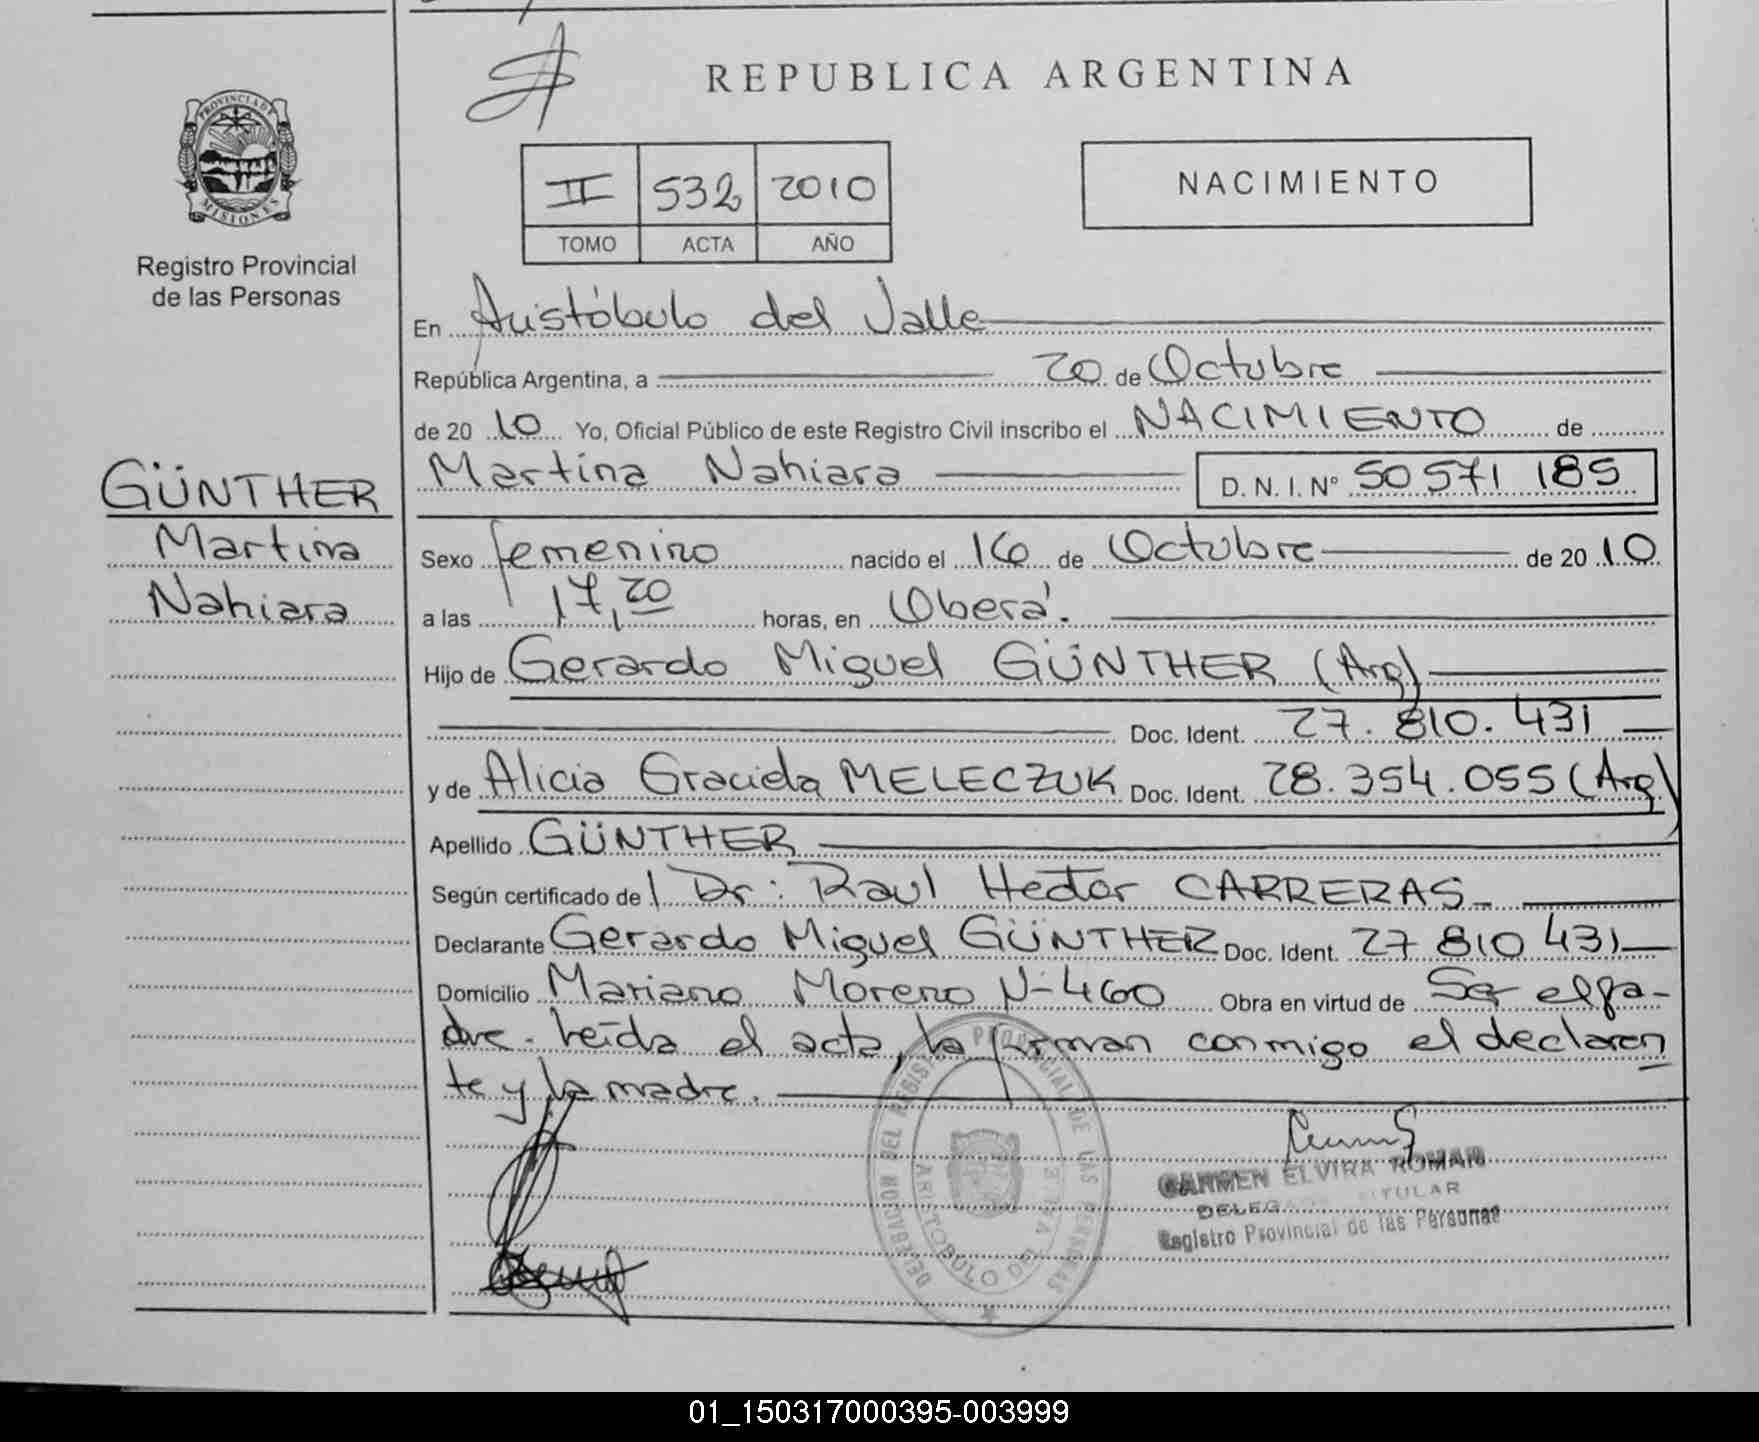 REPUBLICA ARGENTINA
PROVINCIA DE
MISIONES
Registro Provincial
de las Personas
II 532 2010
TOMO ACTA AÑO
NACIMIENTO
En Aristóbulo del Valle
República Argentina, a 20 de Octubre
de 20 10 Yo, Oficial Público de este Registro Civil inscribo el NACIMIENTO de
Martina Nahiara D. N. I. Nº 50 571 185
GÜNTHER
Martina
Nahiara
Sexo femenino nacido el 16 de Octubre de 20 10
a las 17,20 horas, en Oberá.
Hijo de Gerardo Miguel GÜNTHER (Arg)
Doc. Ident. 27.810.431
y de Alicia Graciela MELECZUK Doc. Ident. 28.354.055 (Arg)
Apellido GÜNTHER
Según certificado de l Dr: Raul Hector CARRERAS
Declarante Gerardo Miguel GÜNTHER Doc. Ident. 27 810 431
Domicilio Mariano Moreno Nº 460 Obra en virtud de Ser el pa-
dre. Leída el acta, la firman conmigo el declaran
te y la madre.
DELEGACION DEL REGISTRO PROVINCIAL DE LAS PERSONAS
ARISTOBULO DEL
CARMEN ELVIRA ROMAN
DELEGADA TITULAR
Registro Provincial de las Personas
01_150317000395-003999